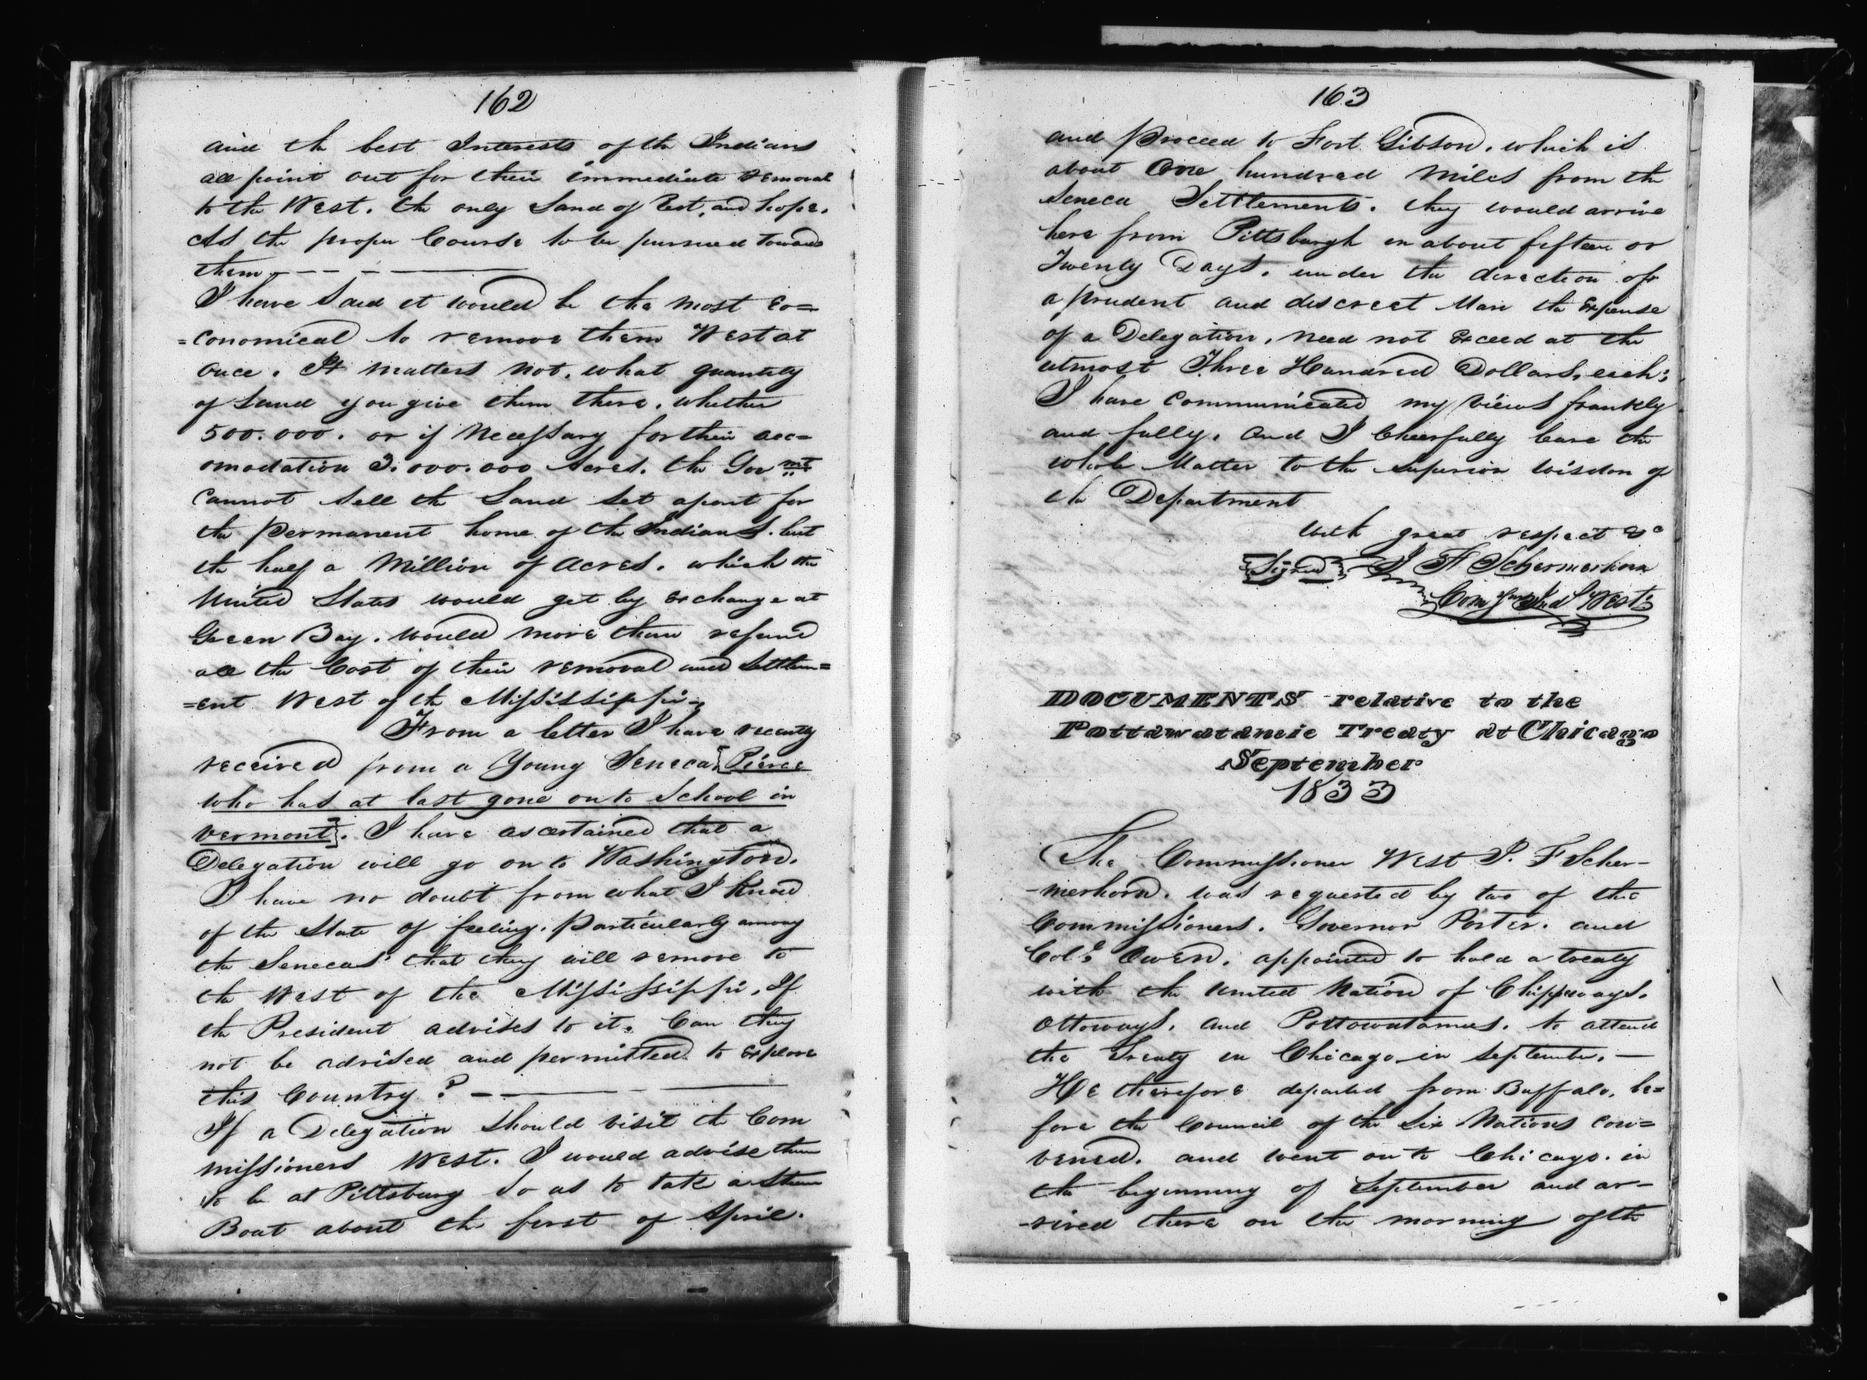 162
and th best Interests of th Indians
all point out for their immediate removal
to the West. th only Land of Rest, and hope.
As the proper Course to be pursued towards
them. — — — ———
I have Said it would be the most Eco=
=conomical to remove them West at
once. It matters not. what quantity
of Land you give them there. whether
500.000. or if Necessary for their acc=
omodation 3.000.000 Acres. the Govmt
cannot Sell th Land Set apart for
the permanent home of th Indians. but
th half a Million of Acres. which the
United States would get by Exchange at
Green Bay. would more than refund
all the Cost of their removal and Settlem=
=ent West of th Mississippi.
From a letter I have recently
received from a Young Seneca [Pierce
who has at last gone on to School in
Vermont]. I have ascertained that a
Delegation will go on to Washington.
I have no doubt from what I know
of the State of feeling. particularly among
th Senecas that they will remove to
th West of the Mississippi. If
th President advises to it. Can they
not be advised and permitted to Explore
this Country? — ———
If a Delegation Should visit th Com
missioners West. I would advise them
to be at Pittsburg So as to take a Steam
Boat about th first of April.
163
and Proceed to Fort Gibson. which is
about One hundred Miles from th
Seneca Settlements. they would arrive
here from Pittsburgh in about fifteen or
Twenty Days. under the direction of
a prudent and discreet Man th Expense
of a Delegation, need not Exceed at the
utmost Three Hundred Dollars, each;
I have Communicated my Views frankly
and fully. And I Cheerfully leave th
whole Matter to th Superior wisdom of
th Department
With great respect &c
[Signed] J F Schermerhorn
Comr Ind West
DOCUMENTS relative to the
Pottawatamie Treaty at Chicago
September
1833
The Commissioner West J. F Scher-
-merhorn. was requested by two of the
Commissioners. Governor Porter. and
Col. Owen. appointed to hold a treaty
with th United Nation of Chippways.
Ottoways. and Pottowatamies. to attend
the Treaty in Chicago in September. —
He therefore departed from Buffalo, be=
fore the Council of the Six Nations con=
vened. and went on to Chicago. in
th beginning of September and ar-
-rived there on th morning of th